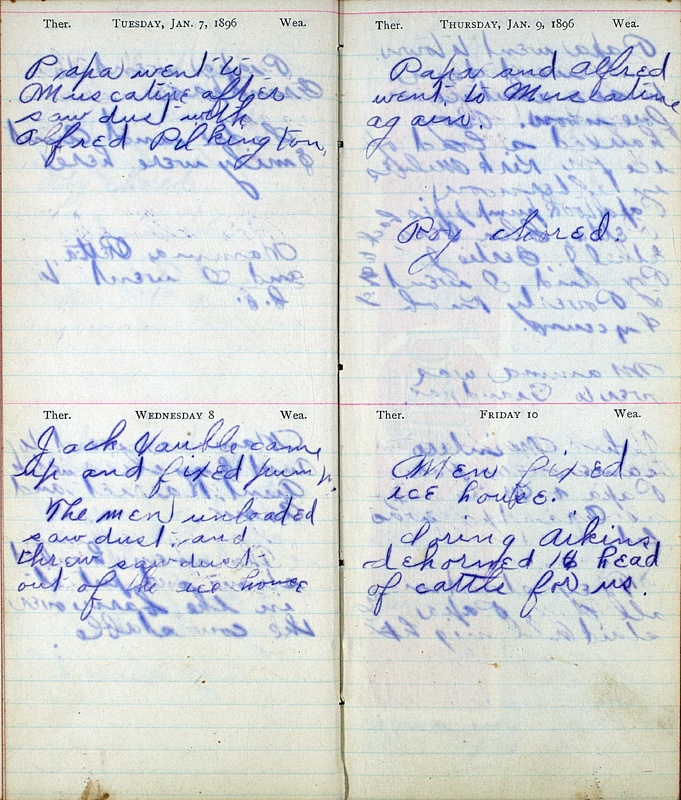 Ther. TUESDAY, JAN. 7, 1896 Wea.
Papa went to
Muscatine after
saw dust with
Alfred Pilkington.
WEDNESDAY 8
Ther. Wea.
Jack Vauble came
up and fixed pump.
The men unloaded
saw dust and
threw sawdust
out of the ice house
Ther. THURSDAY, JAN. 9, 1896 Wea.
Papa and Alfred
went to Muscatine
again.
Roy chored.
Ther. FRIDAY 10 Wea.
Men fixed
ice house.
Loring Aikins
dehorned head
of cattle for us.